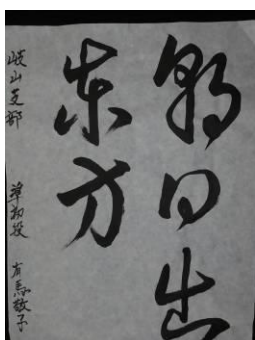 朝日出
東方
岐山支部 草初段 有馬敬子